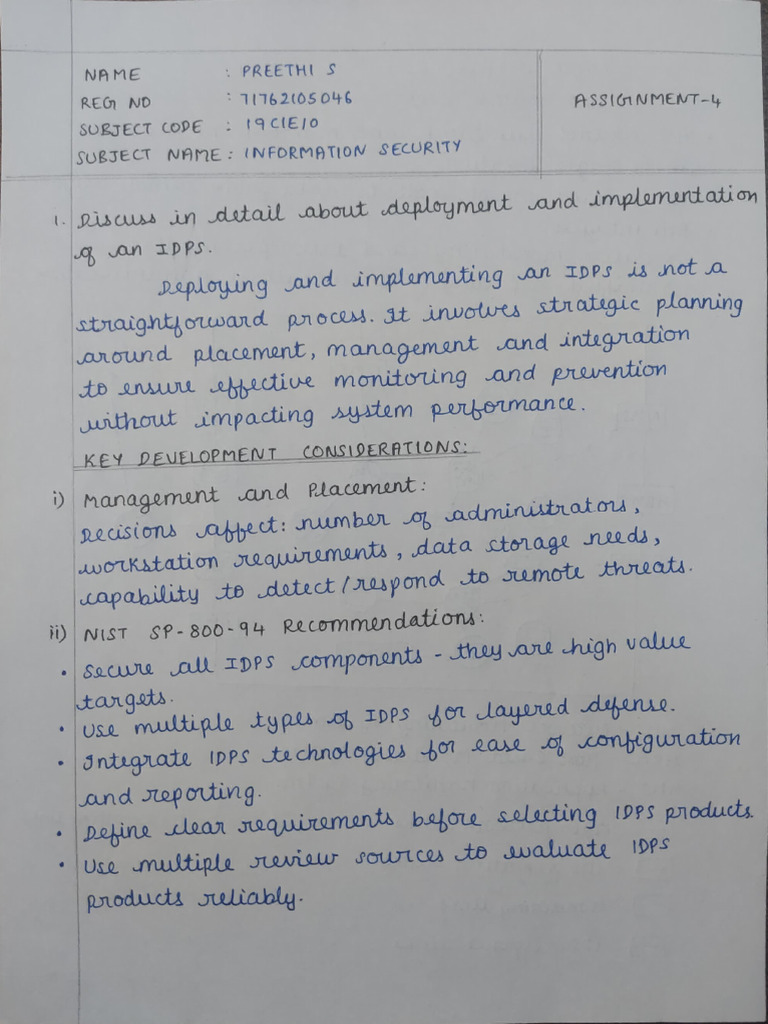 NAME : PREETHI S
REG NO : 71762105046
SUBJECT CODE : 19CIE10
SUBJECT NAME : INFORMATION SECURITY
ASSIGNMENT-4
1. Discuss in detail about deployment and implementation
of an IDPS.
Deploying and implementing an IDPS is not a
straightforward process. It involves strategic planning
around placement, management and integration
to ensure effective monitoring and prevention
without impacting system performance.
KEY DEVELOPMENT CONSIDERATIONS:
i) Management and Placement:
Decisions affect: number of administrators,
workstation requirements, data storage needs,
capability to detect/respond to remote threats.
ii) NIST SP-800-94 Recommendations:
• Secure all IDPS components - they are high value
targets.
• Use multiple types of IDPS for layered defense.
• Integrate IDPS technologies for ease of configuration
and reporting.
• Define clear requirements before selecting IDPS products.
• Use multiple review sources to evaluate IDPS
products reliably.